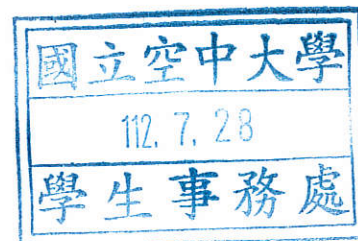 國立空中大學
112. 7. 28
學生事務處